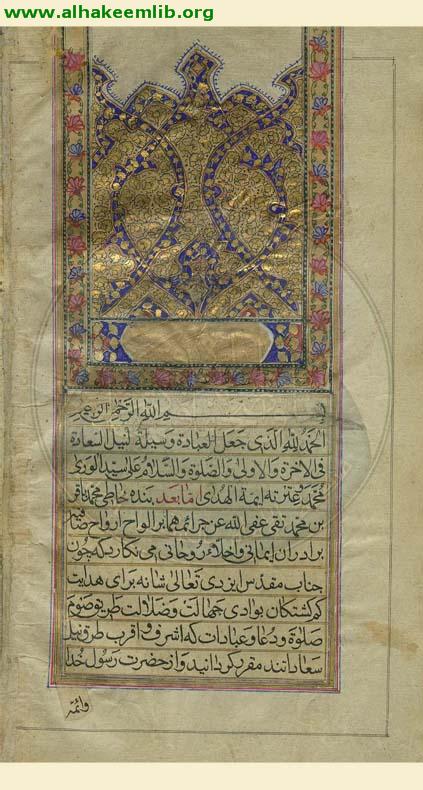 www.alhakeemlib.org
بسم الله الرحمن الرحيم
الحمد لله الذي جعل العبادة وسيلة لنيل السعادة
في الاخرة والاولى والصلوة والسلام على سيد الورى
محمد وعترته ايمة الهدى اما بعد بنده خاطى محمد باقر
بن محمد تقى عفى الله عن جرائمهما بر الواح ارواح صافيه
برادران ايمانى و اخلاء روحانى مى نكارد كه چون
جناب مقدس ايزدى تعالى شانه براى هدايت
كم كشتكان بوادى جهالت وضلالت طريق صوم
صلوة و دعا و عبادات كه اشرف و اقرب طرق نيل
سعادتند مقرر كردانيد و از حضرت رسول خدا
وائمه